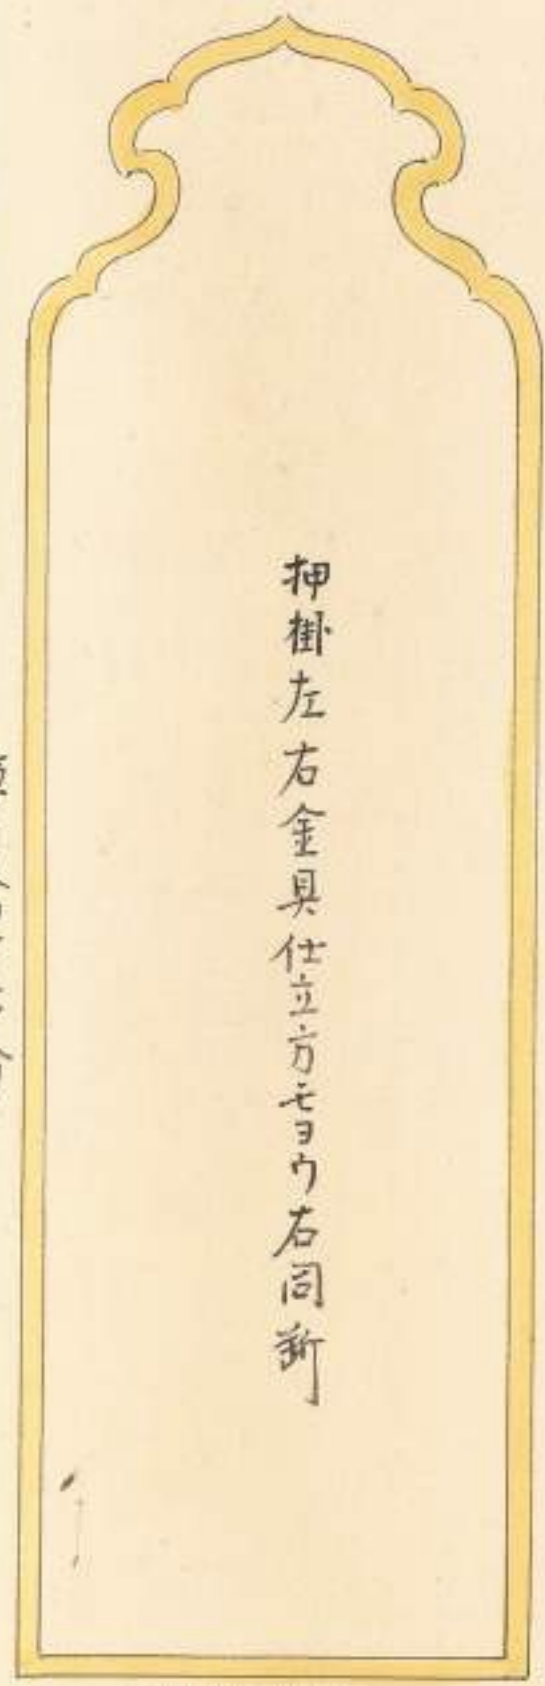 押掛左右金具仕立方モヨウ右同断